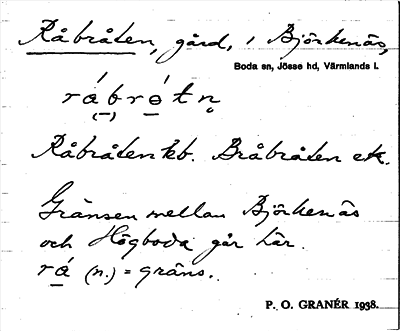 Råbråten, gård, i Björkenäs,
Boda sn, Jösse hd, Värmlands l.
rá̱brǿ̱tn̥
(–)
Råbråten kb. Bråbråten ek.
Gränsen mellan Björkenäs
och Högboda går här.
rá̱ (n.) = gräns.
P. O. GRANÉR 1938.